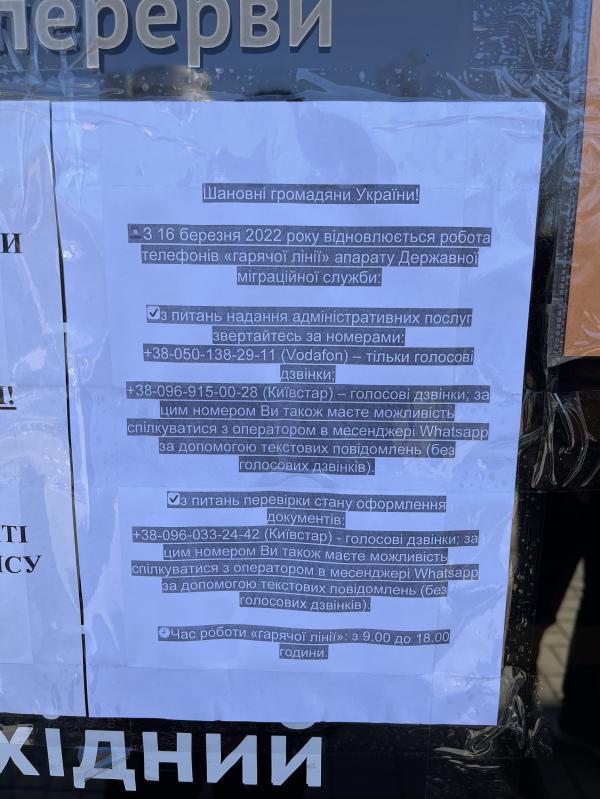 перерви
Шановні громадяни України!
З 16 березня 2022 року відновлюється робота
телефонів «гарячої лінії» апарату Державної
міграційної служби:
✔з питань надання адміністративних послуг
звертайтесь за номерами:
+38-050-138-29-11 (Vodafon) – тільки голосові
дзвінки;
+38-096-915-00-28 (Київстар) – голосові дзвінки; за
цим номером Ви також маєте можливість
спілкуватися з оператором в месенджері Whatsapp
за допомогою текстових повідомлень (без
голосових дзвінків).
✔з питань перевірки стану оформлення
документів:
+38-096-033-24-42 (Київстар) - голосові дзвінки; за
цим номером Ви також маєте можливість
спілкуватися з оператором в месенджері Whatsapp
за допомогою текстових повідомлень (без
голосових дзвінків).
🕘Час роботи «гарячої лінії»: з 9.00 до 18.00
години.
хідний